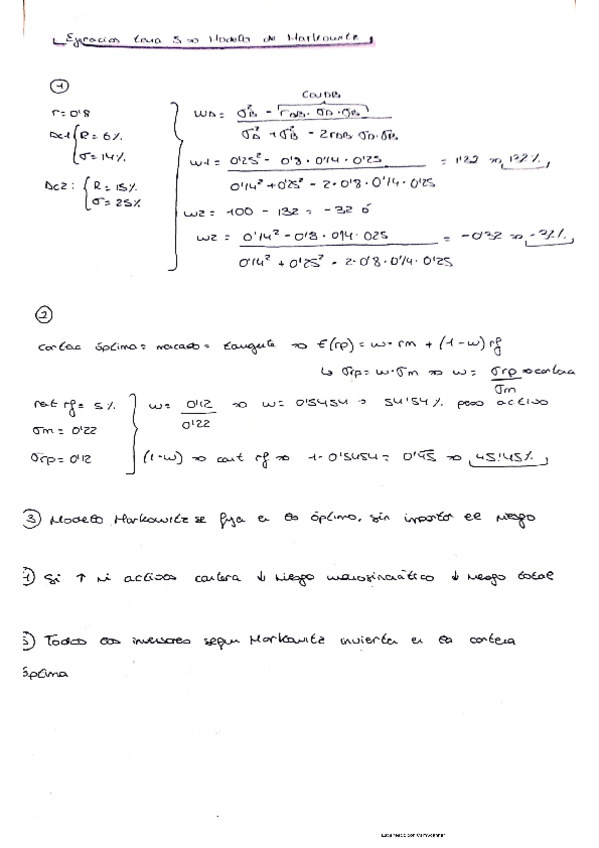 Ejercicios tema 5 ⇒ Modelo de Markowitz
①
r = 0'8
Ac1 { R = 6%
σ = 14%
Ac2: { R = 15%
σ = 25%
Cov AB
WA = σB² - rAB · σA · σB
σA² + σB² - 2rAB σA · σB
W1 = 0'25² - 0'8 · 0'14 · 0'25 = 1'32 ⇒ 132%
0'14² + 0'25² - 2 · 0'8 · 0'14 · 0'25
W2 = 100 - 132 = -32 ó
W2 = 0'14² - 0'8 · 0'14 · 0'25 = -0'32 ⇒ -32%
0'14² + 0'25² - 2 · 0'8 · 0'14 · 0'25
②
cartera óptima = mercado = tangente ⇒ E(rp) = w · rm + (1 - w) rf
↳ σrp = w · σm ⇒ w = σrp ⇒ cartera
σm
rent rf = 5%
σm = 0'22
σrp = 0'12
w = 0'12 ⇒ w = 0'5454 ⇒ 54'54% peso activo
0'22
(1 - w) ⇒ cart rf ⇒ 1 - 0'5454 = 0'45 ⇒ 45'45%
③ Modelo Markowitz se fija en la óptimo, sin importar el riesgo
4) Si ↑ nº activos cartera ↓ riesgo ↓ riesgo total
5) Todos los inversores según Markowitz invierten en la cartera
óptima